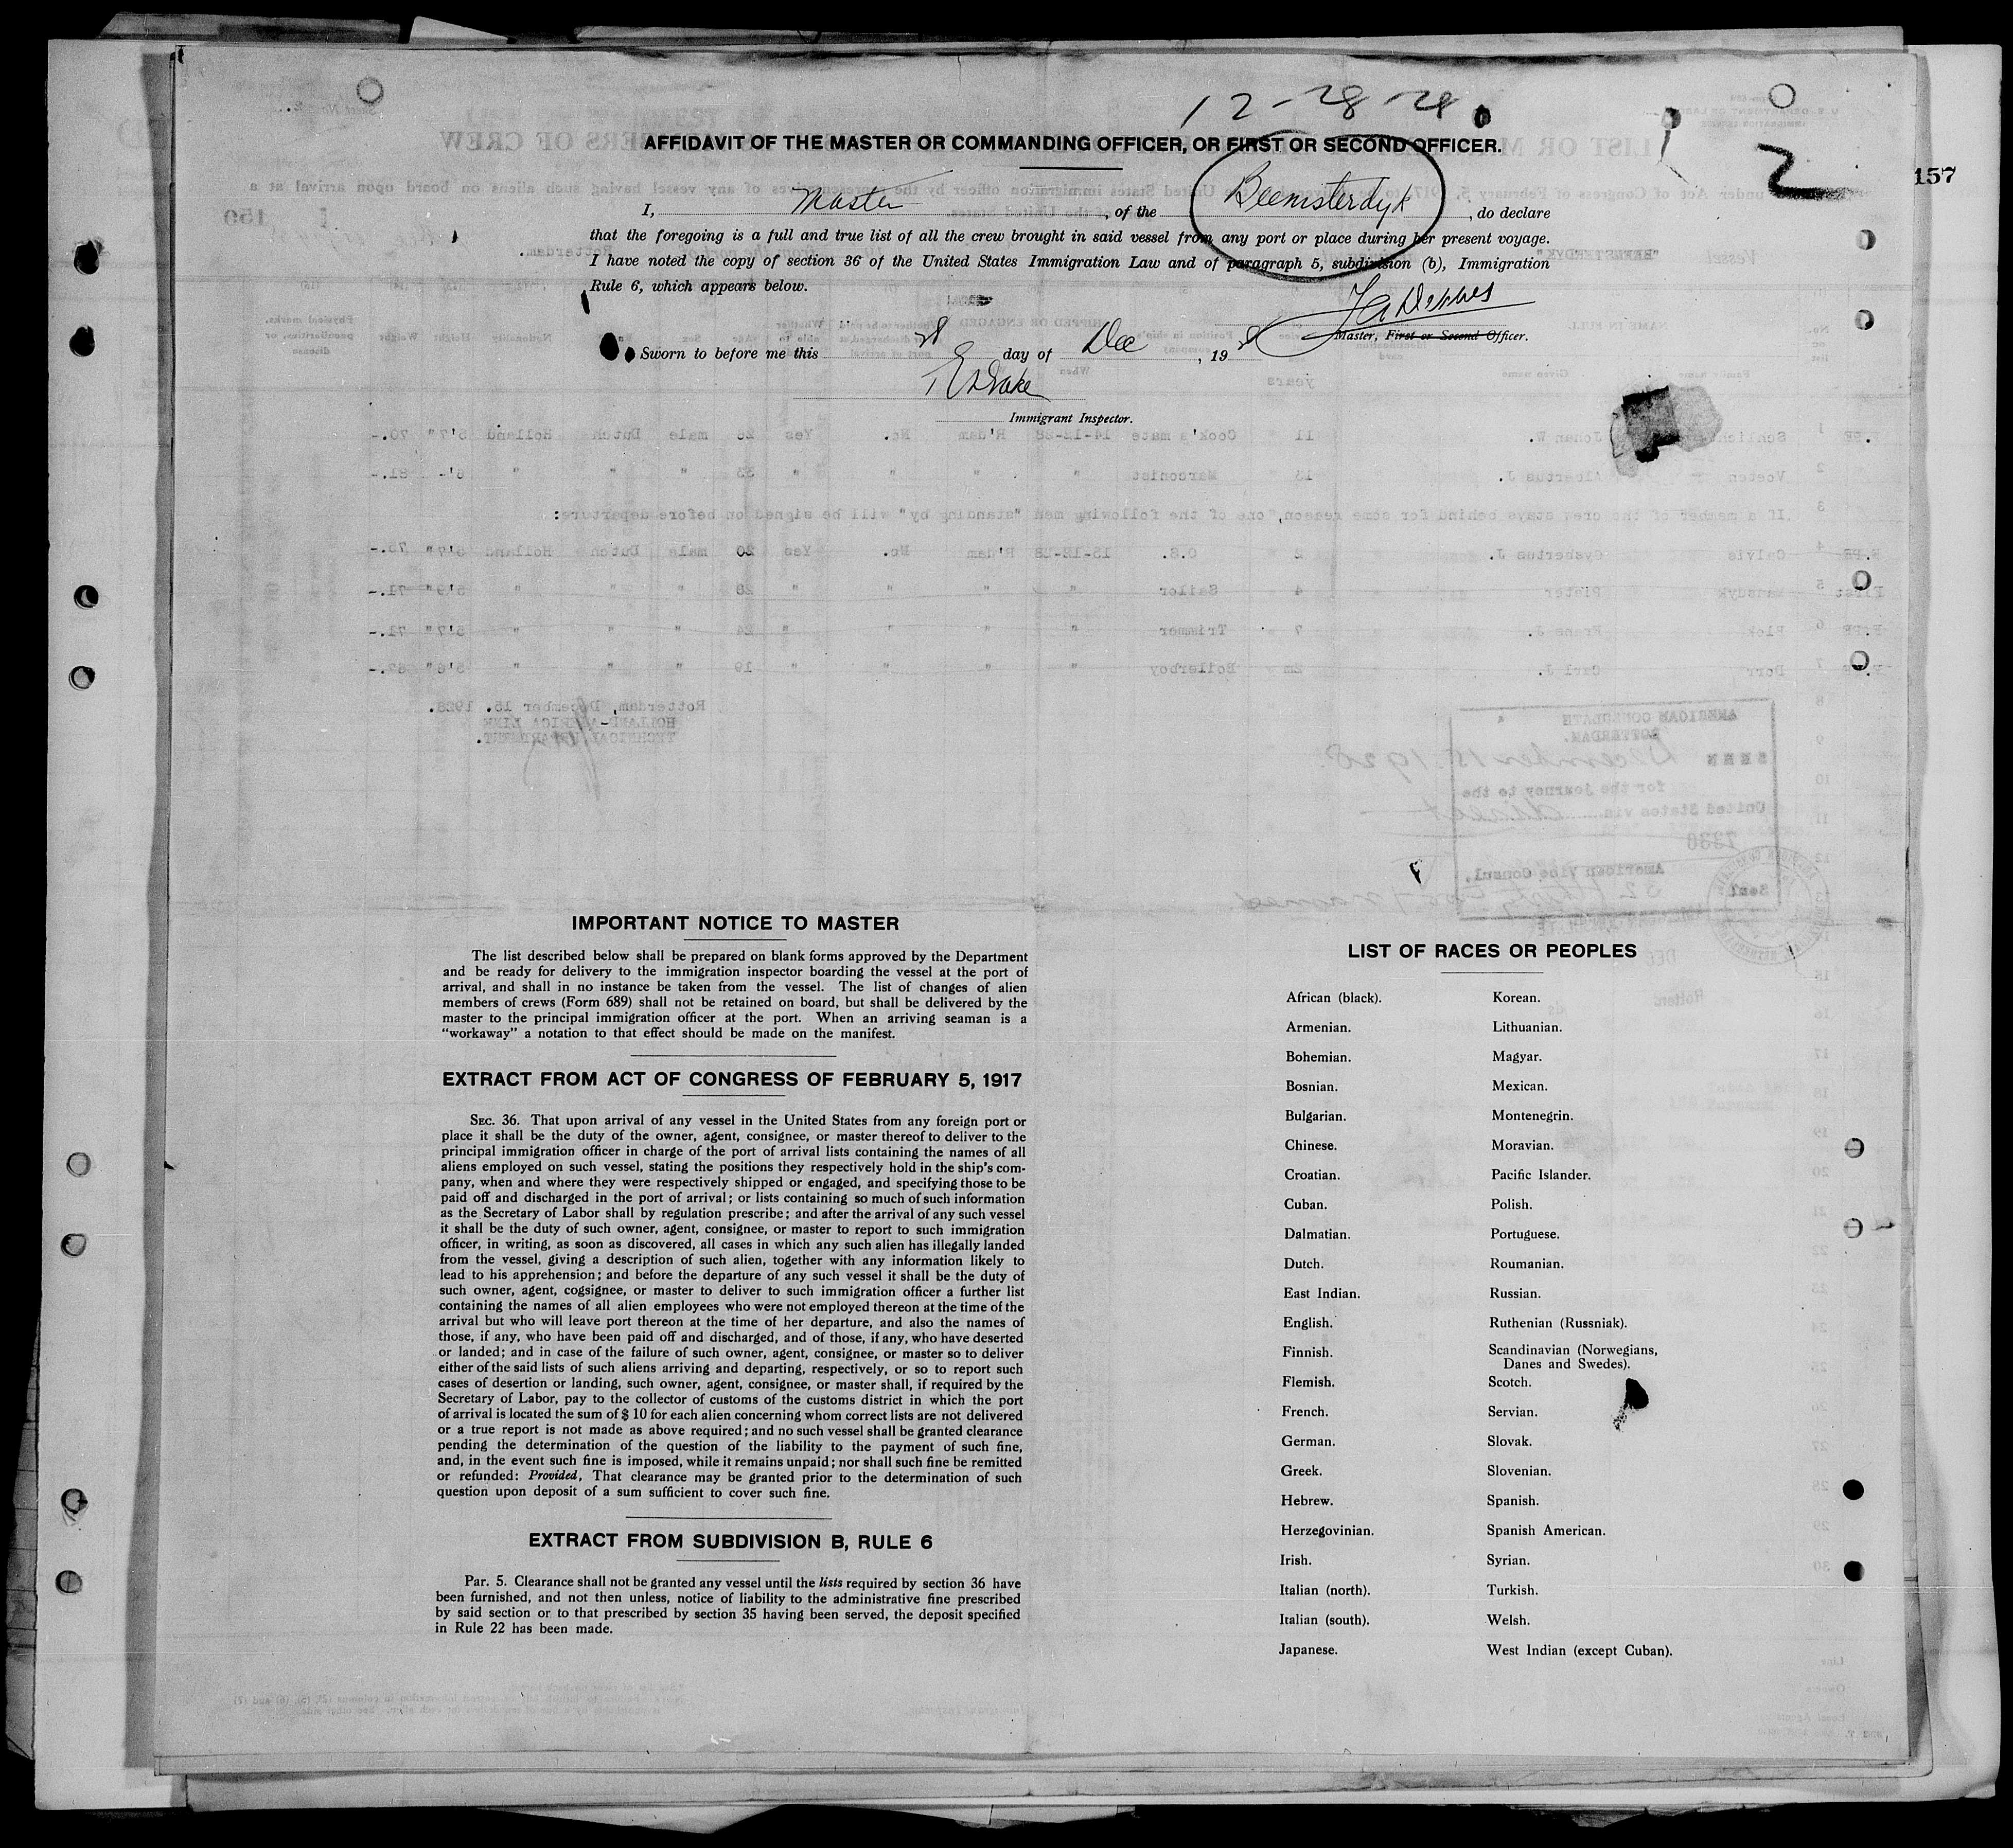 12-28-28
AFFIDAVIT OF THE MASTER OR COMMANDING OFFICER, OR FIRST OR SECOND OFFICER.
2
157
I, Master, of the Beemsterdyk, do declare
that the foregoing is a full and true list of all the crew brought in said vessel from any port or place during her present voyage.
I have noted the copy of section 36 of the United States Immigration Law and of paragraph 5, subdivision (b), Immigration
Rule 6, which appears below.
Master, First or Second Officer.
Sworn to before me this 28 day of Dec, 19 28
Immigrant Inspector.
IMPORTANT NOTICE TO MASTER
The list described below shall be prepared on blank forms approved by the Department
and be ready for delivery to the immigration inspector boarding the vessel at the port of
arrival, and shall in no instance be taken from the vessel. The list of changes of alien
members of crews (Form 689) shall not be retained on board, but shall be delivered by the
master to the principal immigration officer at the port. When an arriving seaman is a
"workaway" a notation to that effect should be made on the manifest.
EXTRACT FROM ACT OF CONGRESS OF FEBRUARY 5, 1917
SEC. 36. That upon arrival of any vessel in the United States from any foreign port or
place it shall be the duty of the owner, agent, consignee, or master thereof to deliver to the
principal immigration officer in charge of the port of arrival lists containing the names of all
aliens employed on such vessel, stating the positions they respectively hold in the ship's com-
pany, when and where they were respectively shipped or engaged, and specifying those to be
paid off and discharged in the port of arrival; or lists containing so much of such information
as the Secretary of Labor shall by regulation prescribe; and after the arrival of any such vessel
it shall be the duty of such owner, agent, consignee, or master to report to such immigration
officer, in writing, as soon as discovered, all cases in which any such alien has illegally landed
from the vessel, giving a description of such alien, together with any information likely to
lead to his apprehension; and before the departure of any such vessel it shall be the duty of
such owner, agent, cogsignee, or master to deliver to such immigration officer a further list
containing the names of all alien employees who were not employed thereon at the time of the
arrival but who will leave port thereon at the time of her departure, and also the names of
those, if any, who have been paid off and discharged, and of those, if any, who have deserted
or landed; and in case of the failure of such owner, agent, consignee, or master so to deliver
either of the said lists of such aliens arriving and departing, respectively, or so to report such
cases of desertion or landing, such owner, agent, consignee, or master shall, if required by the
Secretary of Labor, pay to the collector of customs of the customs district in which the port
of arrival is located the sum of $ 10 for each alien concerning whom correct lists are not delivered
or a true report is not made as above required; and no such vessel shall be granted clearance
pending the determination of the question of the liability to the payment of such fine,
and, in the event such fine is imposed, while it remains unpaid; nor shall such fine be remitted
or refunded: Provided, That clearance may be granted prior to the determination of such
question upon deposit of a sum sufficient to cover such fine.
EXTRACT FROM SUBDIVISION B, RULE 6
Par. 5. Clearance shall not be granted any vessel until the lists required by section 36 have
been furnished, and not then unless, notice of liability to the administrative fine prescribed
by said section or to that prescribed by section 35 having been served, the deposit specified
in Rule 22 has been made.
LIST OF RACES OR PEOPLES
African (black).
Armenian.
Bohemian.
Bosnian.
Bulgarian.
Chinese.
Croatian.
Cuban.
Dalmatian.
Dutch.
East Indian.
English.
Finnish.
Flemish.
French.
German.
Greek.
Hebrew.
Herzegovinian.
Irish.
Italian (north).
Italian (south).
Japanese.
Korean.
Lithuanian.
Magyar.
Mexican.
Montenegrin.
Moravian.
Pacific Islander.
Polish.
Portuguese.
Roumanian.
Russian.
Ruthenian (Russniak).
Scandinavian (Norwegians,
Danes and Swedes).
Scotch.
Servian.
Slovak.
Slovenian.
Spanish.
Spanish American.
Syrian.
Turkish.
Welsh.
West Indian (except Cuban).